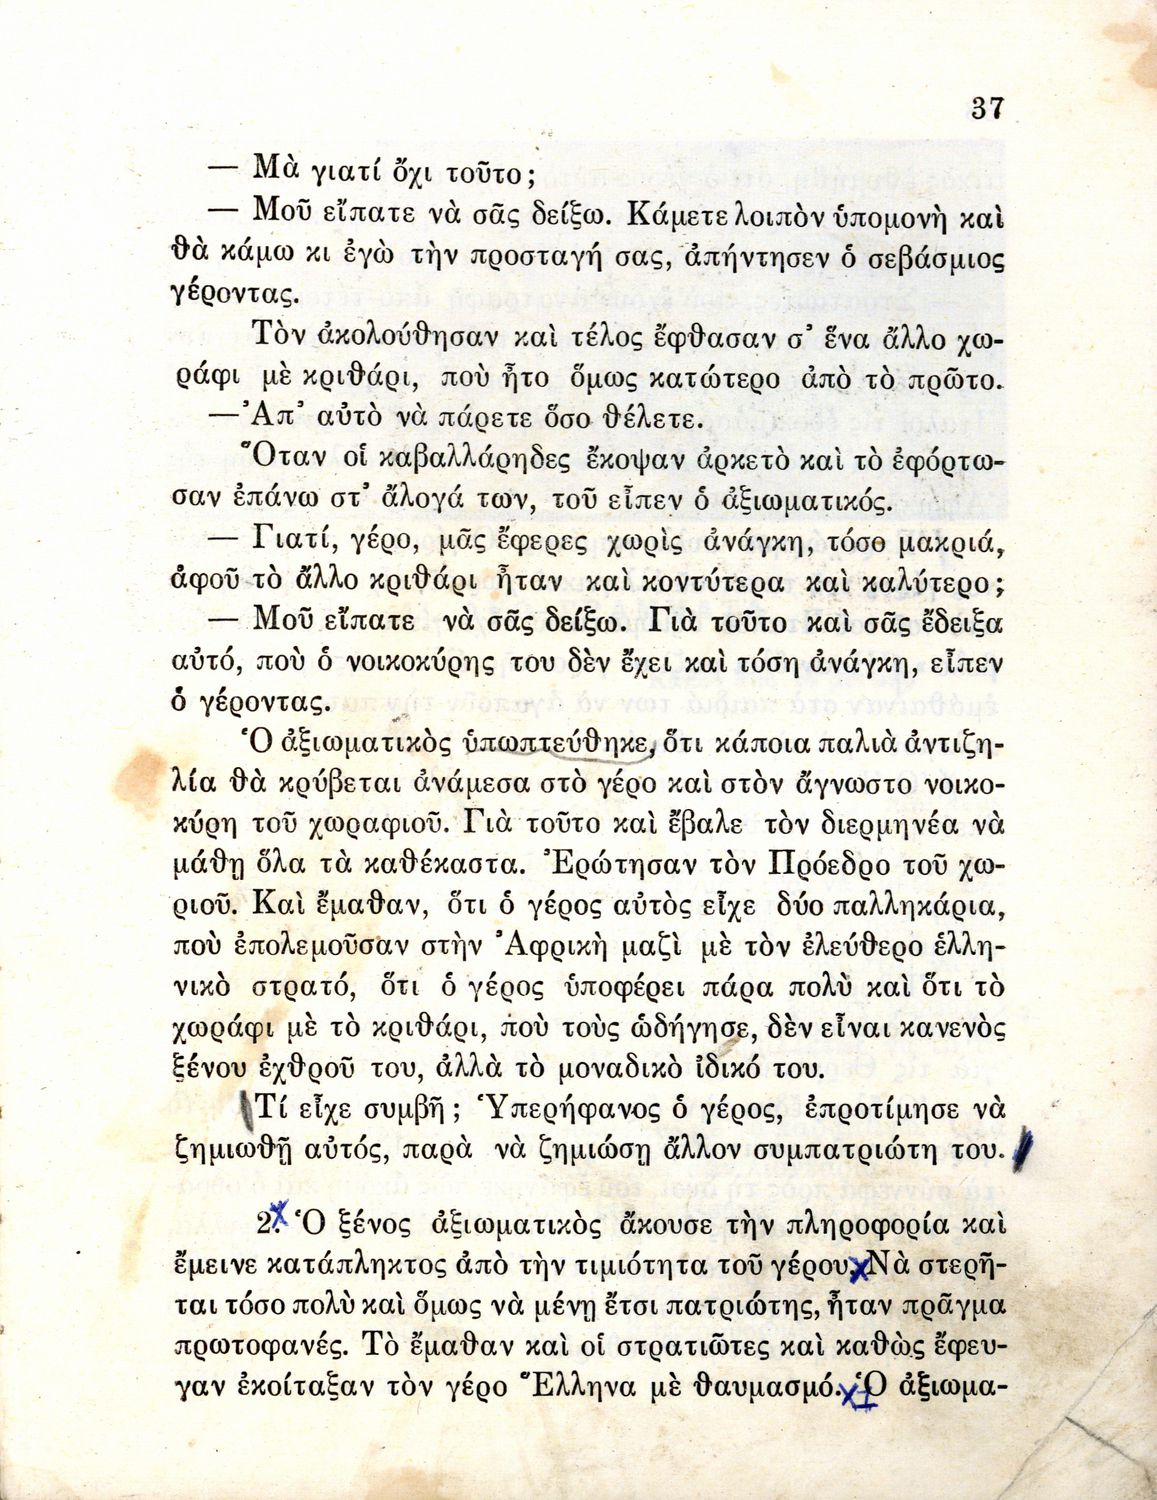 37
— Μὰ γιατί ὄχι τοῦτο;
— Μοῦ εἴπατε νὰ σᾶς δείξω. Κάμετε λοιπὸν ὑπομονὴ καὶ
θὰ κάμω κι ἐγὼ τὴν προσταγή σας, ἀπήντησεν ὁ σεβάσμιος
γέροντας.
Τὸν ἀκολούθησαν καὶ τέλος ἔφθασαν σ’ ἕνα ἄλλο χω-
ράφι μὲ κριθάρι, ποὺ ἦτο ὅμως κατώτερο ἀπὸ τὸ πρῶτο.
—’Απ’ αὐτὸ νὰ πάρετε ὅσο θέλετε.
Ὅταν οἱ καβαλλάρηδες ἔκοψαν ἀρκετὸ καὶ τὸ ἐφόρτω-
σαν ἐπάνω στ’ ἄλογά των, τοῦ εἶπεν ὁ ἀξιωματικός.
— Γιατί, γέρο, μᾶς ἔφερες χωρὶς ἀνάγκη, τόσο μακριά,
ἀφοῦ τὸ ἄλλο κριθάρι ἦταν καὶ κοντύτερα καὶ καλύτερο;
— Μοῦ εἴπατε νὰ σᾶς δείξω. Γιὰ τοῦτο καὶ σᾶς ἔδειξα
αὐτό, ποὺ ὁ νοικοκύρης του δὲν ἔχει καὶ τόση ἀνάγκη, εἶπεν
ὁ γέροντας.
Ὁ ἀξιωματικὸς ὑπωπτεύθηκε, ὅτι κάποια παλιὰ ἀντιζη-
λία θὰ κρύβεται ἀνάμεσα στὸ γέρο καὶ στὸν ἄγνωστο νοικο-
κύρη τοῦ χωραφιοῦ. Γιὰ τοῦτο καὶ ἔβαλε τὸν διερμηνέα νὰ
μάθῃ ὅλα τὰ καθέκαστα. Ἐρώτησαν τὸν Πρόεδρο τοῦ χω-
ριοῦ. Καὶ ἔμαθαν, ὅτι ὁ γέρος αὐτὸς εἶχε δύο παλληκάρια,
ποὺ ἐπολεμοῦσαν στὴν Ἀφρικὴ μαζὶ μὲ τὸν ἐλεύθερο ἑλλη-
νικὸ στρατό, ὅτι ὁ γέρος ὑποφέρει πάρα πολὺ καὶ ὅτι τὸ
χωράφι μὲ τὸ κριθάρι, ποὺ τοὺς ὡδήγησε, δὲν εἶναι κανενὸς
ξένου ἐχθροῦ του, ἀλλὰ τὸ μοναδικὸ ἰδικό του.
Τί εἶχε συμβῆ; Ὑπερήφανος ὁ γέρος, ἐπροτίμησε νὰ
ζημιωθῇ αὐτός, παρὰ νὰ ζημιώσῃ ἄλλον συμπατριώτη του.
2. Ὁ ξένος ἀξιωματικὸς ἄκουσε τὴν πληροφορία καὶ
ἔμεινε κατάπληκτος ἀπὸ τὴν τιμιότητα τοῦ γέρου. Νὰ στερῆ-
ται τόσο πολὺ καὶ ὅμως νὰ μένῃ ἔτσι πατριώτης, ἦταν πρᾶγμα
πρωτοφανές. Τὸ ἔμαθαν καὶ οἱ στρατιῶτες καὶ καθὼς ἔφευ-
γαν ἐκοίταξαν τὸν γέρο Ἕλληνα μὲ θαυμασμό. Ὁ ἀξιωμα-